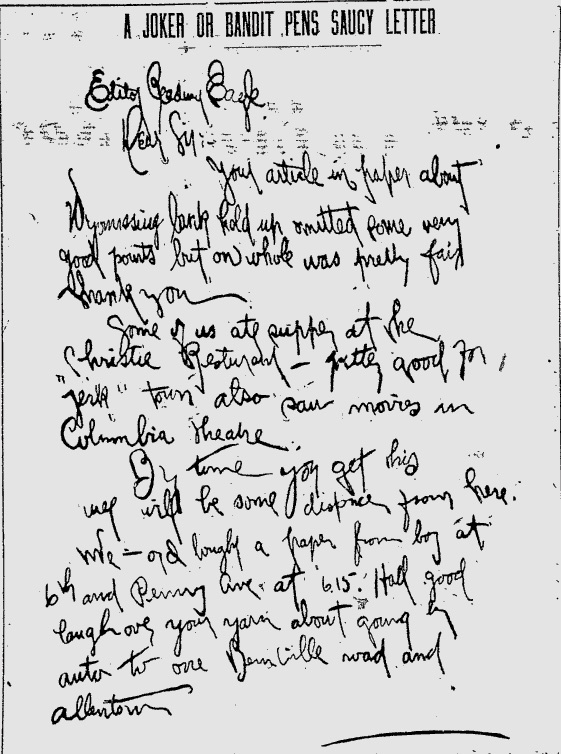 A JOKER OR BANDIT PENS SAUCY LETTER
Editor Reading Eagle.
Dear Sir:
Your article in paper about
Wyomissing bank hold up omitted some very
good points but on whole was pretty fair
thank you
Some of us ate supper at the
Christie Resturant – pretty good for
"jerk" town also saw movies in
Columbia theatre
By time you get this
we will be some distance from here.
We – bought a paper from boy at
6th and Penn Ave. at 6.15. Had good
laugh over your yarn about going by
auto to one Bernville road and
allentown